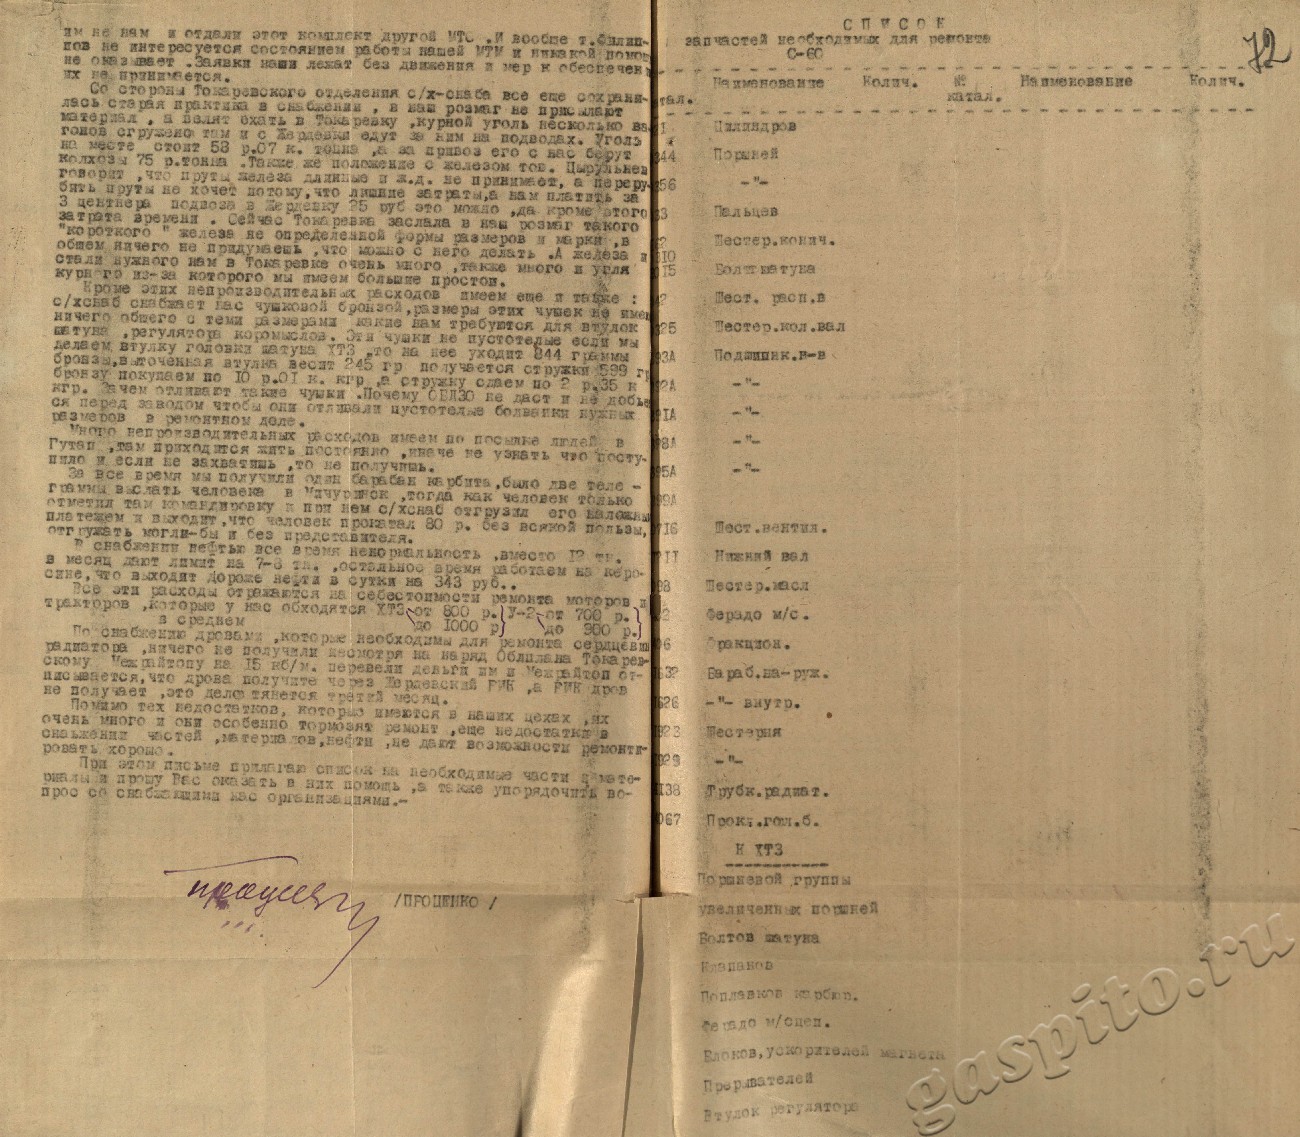 им не нам и отдали этот комплект другой МТС .И вообще т.Филип-
пов не интересуется состоянием работы нашей МТМ и никакой помощ
не оказывает .Заявки наши лежат без движения и мер к обеспечен
их не принимается.
Со стороны Токаревского отделения с/х-снаба все еще сохрани-
лась старая практика в снабжении , в наш розмаг не присылают
материал , а велят ехать в Токаревку ,курной уголь несколько ва-
гонов сгружено там и с Жердевки едут за ним на подводах. Уголь
на месте стоит 53 р.07 к. тонна ,а за привоз его с нас берут
колхозы 75 р.тонна .Также же положение с железом тов. Цырульнев
говорит ,что пруты железа длинные и ж.д. не принимает, а переру-
бить пруты не хочет потому,что лишние затраты,а нам платить за
3 центнера подвоза в Жердевку 25 руб это можно ,да кроме этого
затрата времени . Сейчас Токаревка заслала в наш розмаг такого
"короткого " железа не определенной формы размеров и марки ,в
общем ничего не придумаешь ,что можно с него делать .А железа и
стали нужного нам в Токаревке очень много ,также много и угля
курного из-за которого мы имеем большие простои.
Кроме этих непроизводительных расходов имеем еще и такие :
с/хснаб снабжает нас чушковой бронзой,размеры этих чушек не имеют
ничего общего с теми размерами какие нам требуются для втулок
шатуна ,регулятора коромыслов. Эти чушки не пустотелые если мы
делаем втулку головки шатуна ХТЗ ,то на нее уходит 844 граммы
бронзы,выточенная втулка весит 245 гр получается стружки 599 гр
бронзу покупаем по 10 р.01 к. кгр ,а стружку сдаем по 2 р.35 к
кгр. Зачем отливают такие чушки .Почему ОБЛЗО не даст и не добье
ся перед заводом чтобы они отливали пустотелые болванки нужных
размеров в ремонтном деле.
Много непроизводительных расходов имеем по посылке людей в
Гутап ,там приходится жить постоянно ,иначе не узнать что посту-
пило и если не захватишь ,то не получишь.
За все время мы получили один барабан карбита,было две теле -
граммы выслать человека в Мичуринск ,тогда как человек только
отметил там командировку и при нем с/хснаб отгрузил его наложны
платежем и выходит,что человек прокатал 80 р. без всякой пользы,
отгружать могли-бы и без представителя.
В снабжении нефтью все время ненормальность ,вместо 12 тн.
в месяц дают лимит на 7-8 тн. ,остальное время работаем на керо-
сине,что выходит дороже нефти в сутки на 343 руб..
Все эти расходы отражаются на себестоимости ремонта моторов и
тракторов ,которые у нас обходятся ХТЗ от 800 р. У-2 от 700 р.
в среднем до 1000 р до 900 р.
По снабжению дровами ,которые необходимы для ремонта сердцевин
радиатора ,ничего не получили несмотря на наряд Облплана Токарев-
скому Межрайтопу на 15 кб/м. перевели деньги им и Межрайтоп от-
писывается,что дрова получите через Жердевский РИК ,а РИК дров
не получает ,это дело тянется третий месяц.
Помимо тех недостатков, которые имеются в наших цехах ,их
очень много и они особенно тормозят ремонт ,еще недостатки в
снабжении частей ,материалов,нефти ,не дают возможности ремонти-
ровать хорошо.
При этом письме прилагаю список на необходимые части и мате-
риалы и прошу Вас оказать в них помощь ,а также упорядочить во-
прос со снабжающими нас организациями.-
/ПРОЦЕНКО /
72
СПИСОК
запчастей необходимых для ремонта
С-60
Наименование Колич. № Наименование Колич.
тал. катал.
Цилиндров
44 Поршней
56 -"-
Пальцев
Шестер.конич.
10
15 Болт шатуна
Шест. расп.в
25 Шестер.кол.вал
93А Подшипник.н-в
2А -"-
91А -"-
98А -"-
95А -"-
99А
716 Шест.вентил.
Нижний вал
98 Шестер.масл
Ферадо м/с.
06 Фракцион.
632 Бараб.на-руж.
626 -"- внутр.
923 Шестерня
929 -"-
138 Трубк.радиат.
067 Прокл.гол.б.
К ХТЗ
Поршневой группы
увеличенных поршней
Болтов шатуна
Клапанов
Поплавков карбюр.
Ферадо м/сцеп.
Блоков,ускорителей магнета
Прерывателей
Втулок регулятора
gaspito.ru